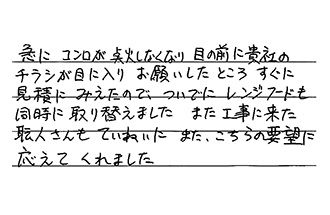 急に コンロが点火しなくなり 目の前に貴社の
チラシが目に入り お願いした ところ すぐに
見積に みえたので、ついでに レンジフードも
同時に 取り替えました また 工事に来た
職人さんも ていねいに また、こちらの要望に
応えて くれました